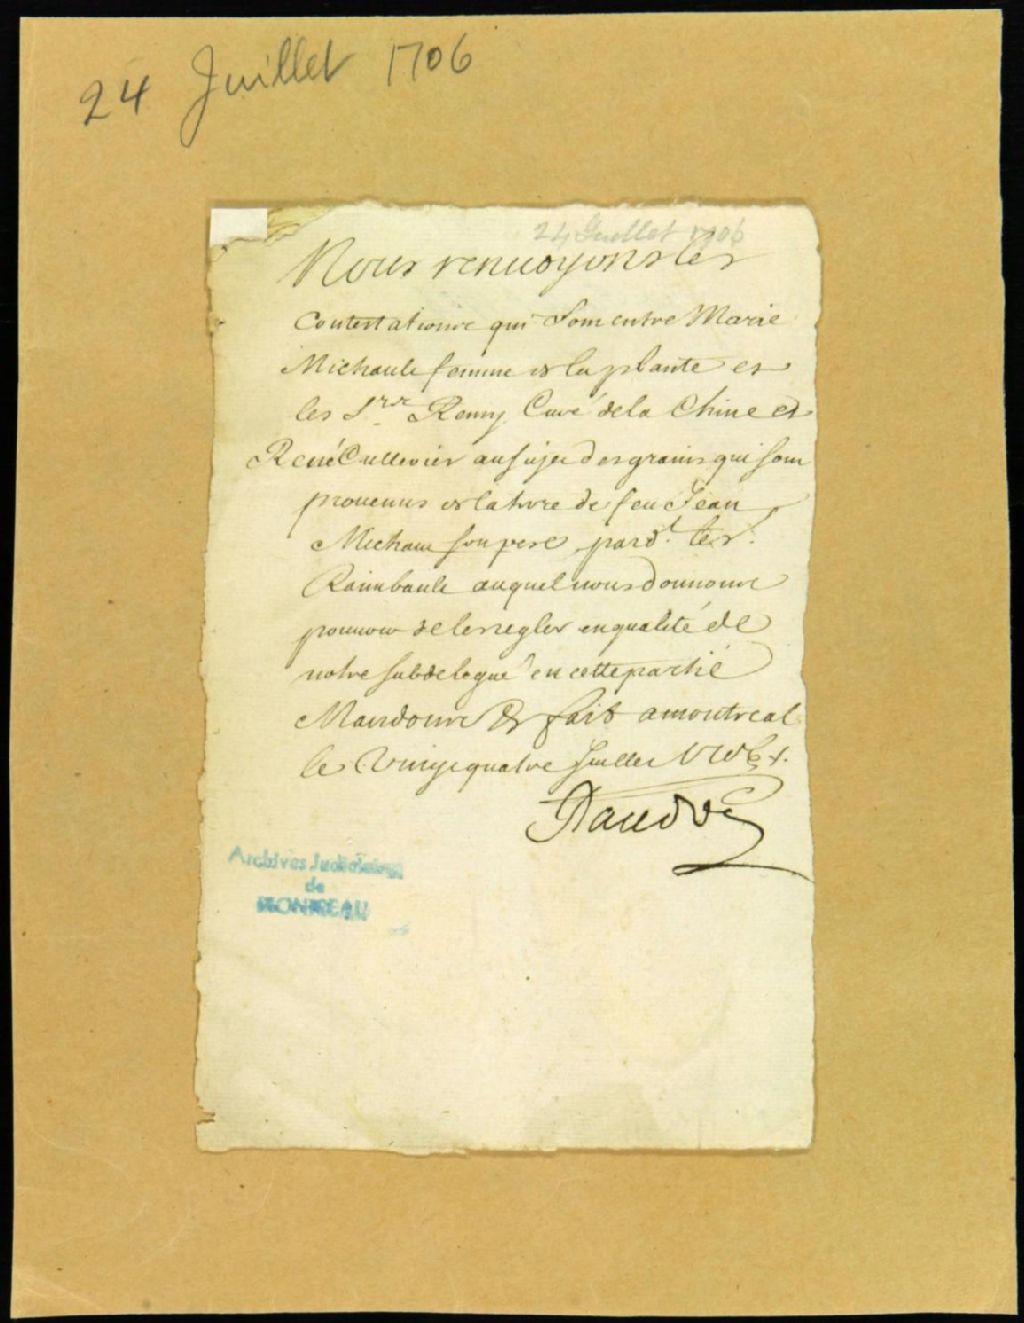 24 Juillet 1706
24 Juillet 1706
Nous renuoyons les
Contestations qui sont entre Marie
Michault femme de la plante et
les Srs Remy Curé de la Chine et
René Cullerier au sujet des grains qui sont
prouenus de la terre de feu Jean
Michau son pere, pard.t le s.r
Raimbault auquel nous donnons
pouuoir de les regler en qualité de
notre subdelegué en cette partie
Mandons &c fait a montreal
le Vingt quatre Juillet
Raudot
Archives Judiciaires
de
MONTREAL